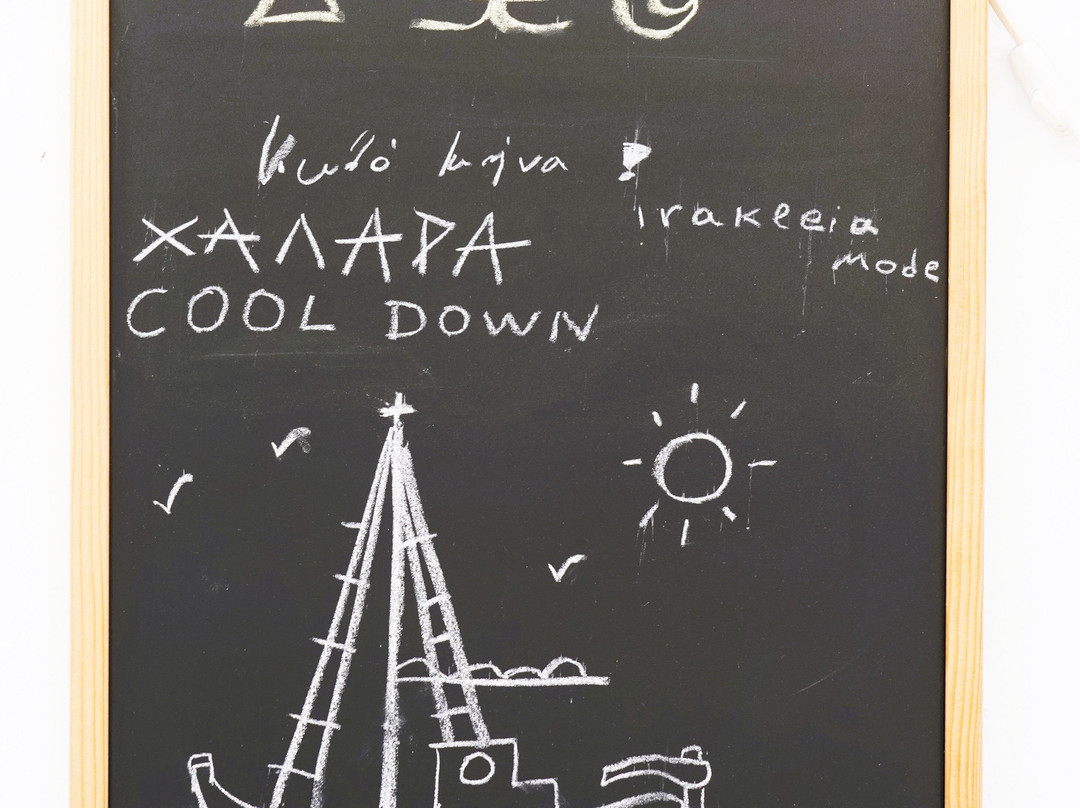 Καλό μήνα !
ΧΑΛΑΡΑ
COOL DOWN
irakleia
mode